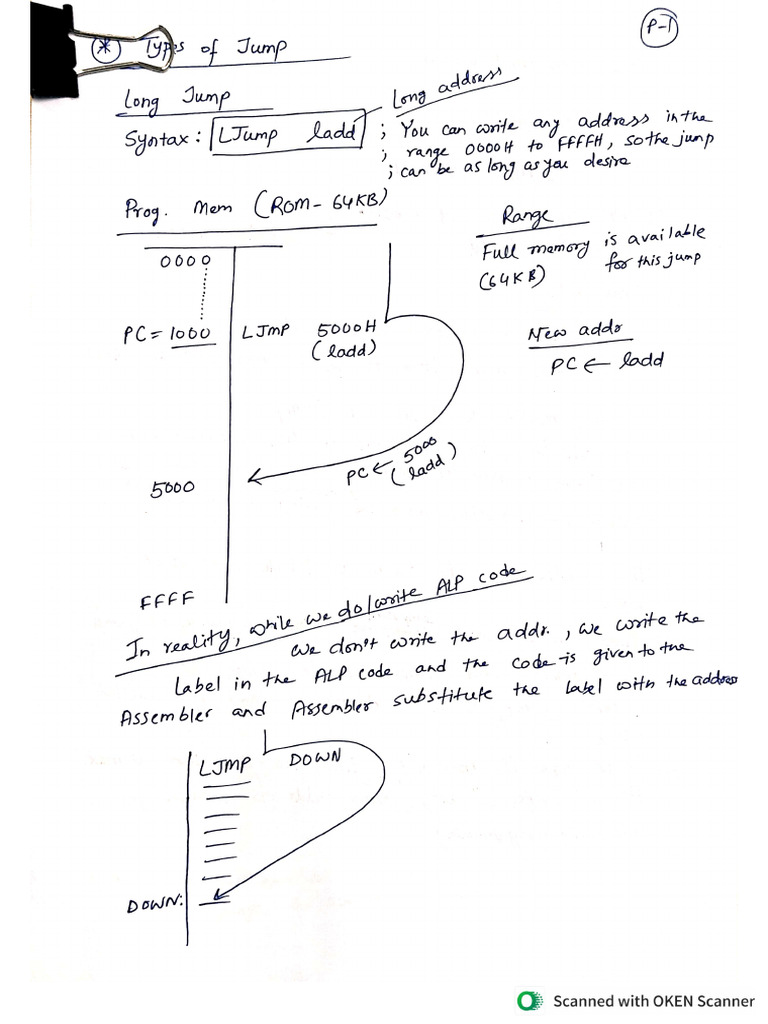 P-1
* Types of Jump
Long Jump
Long address
Syntax: LJump ladd ; You can write any address in the
; range 0000H to FFFFH, so the jump
; can be as long as you desire
Prog. Mem (ROM- 64KB)
Range
Full memory is available
(64KB) for this jump
0000
PC = 1000 LJMP 5000H
(ladd)
New addr
PC ← ladd
PC ← 5000
(ladd)
5000
FFFF
In reality, while we do/write ALP code
we don't write the addr., we write the
Label in the ALP code and the code is given to the
Assembler and Assembler substitute the label with the address
LJMP DOWN
DOWN:
Scanned with OKEN Scanner